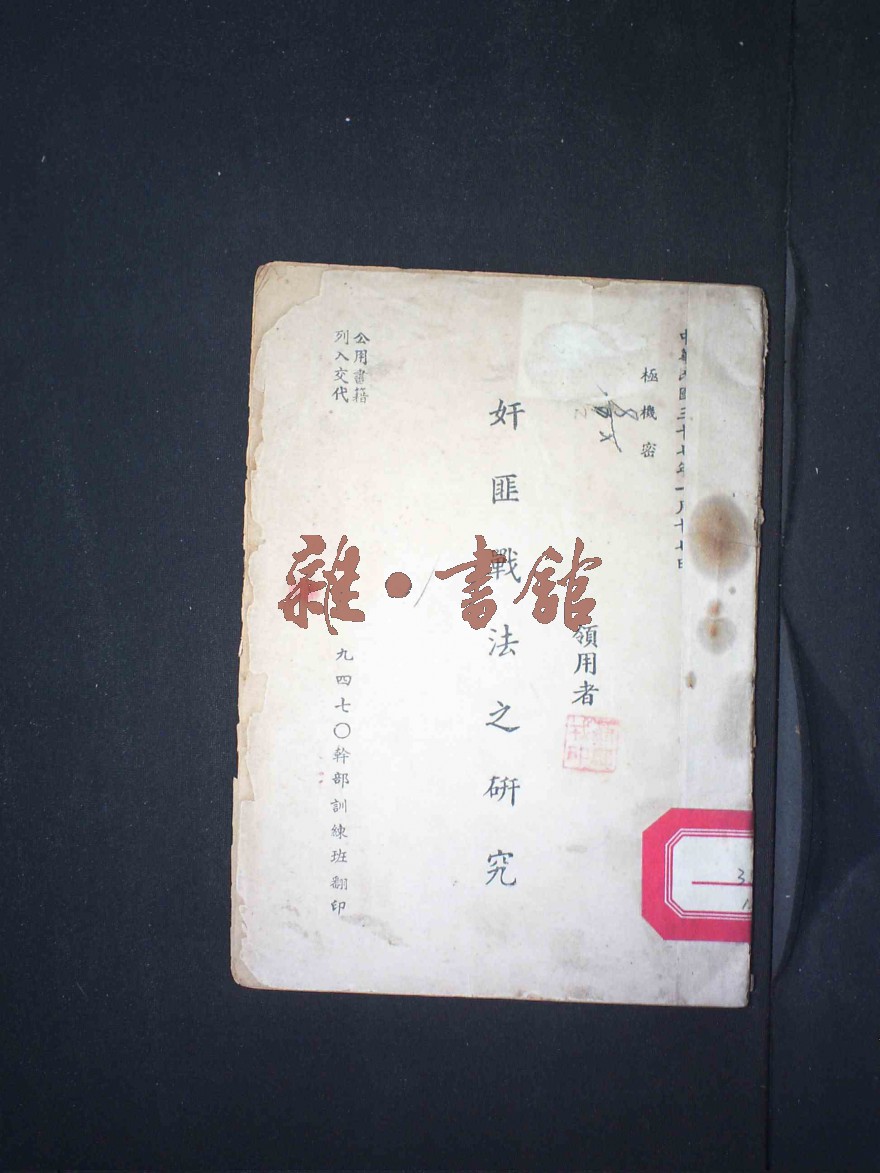 中華民國三十七年一月十七日
極機密
領用者
奸匪戰法之研究
公用書籍
列入交代
九四七〇幹部訓練班翻印
雜·書館